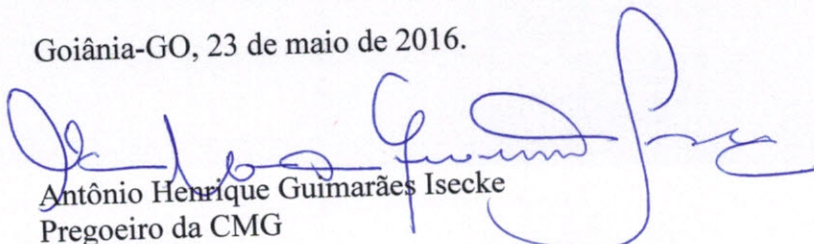 Goiânia-GO, 23 de maio de 2016.
Antônio Henrique Guimarães Isecke
Pregoeiro da CMG